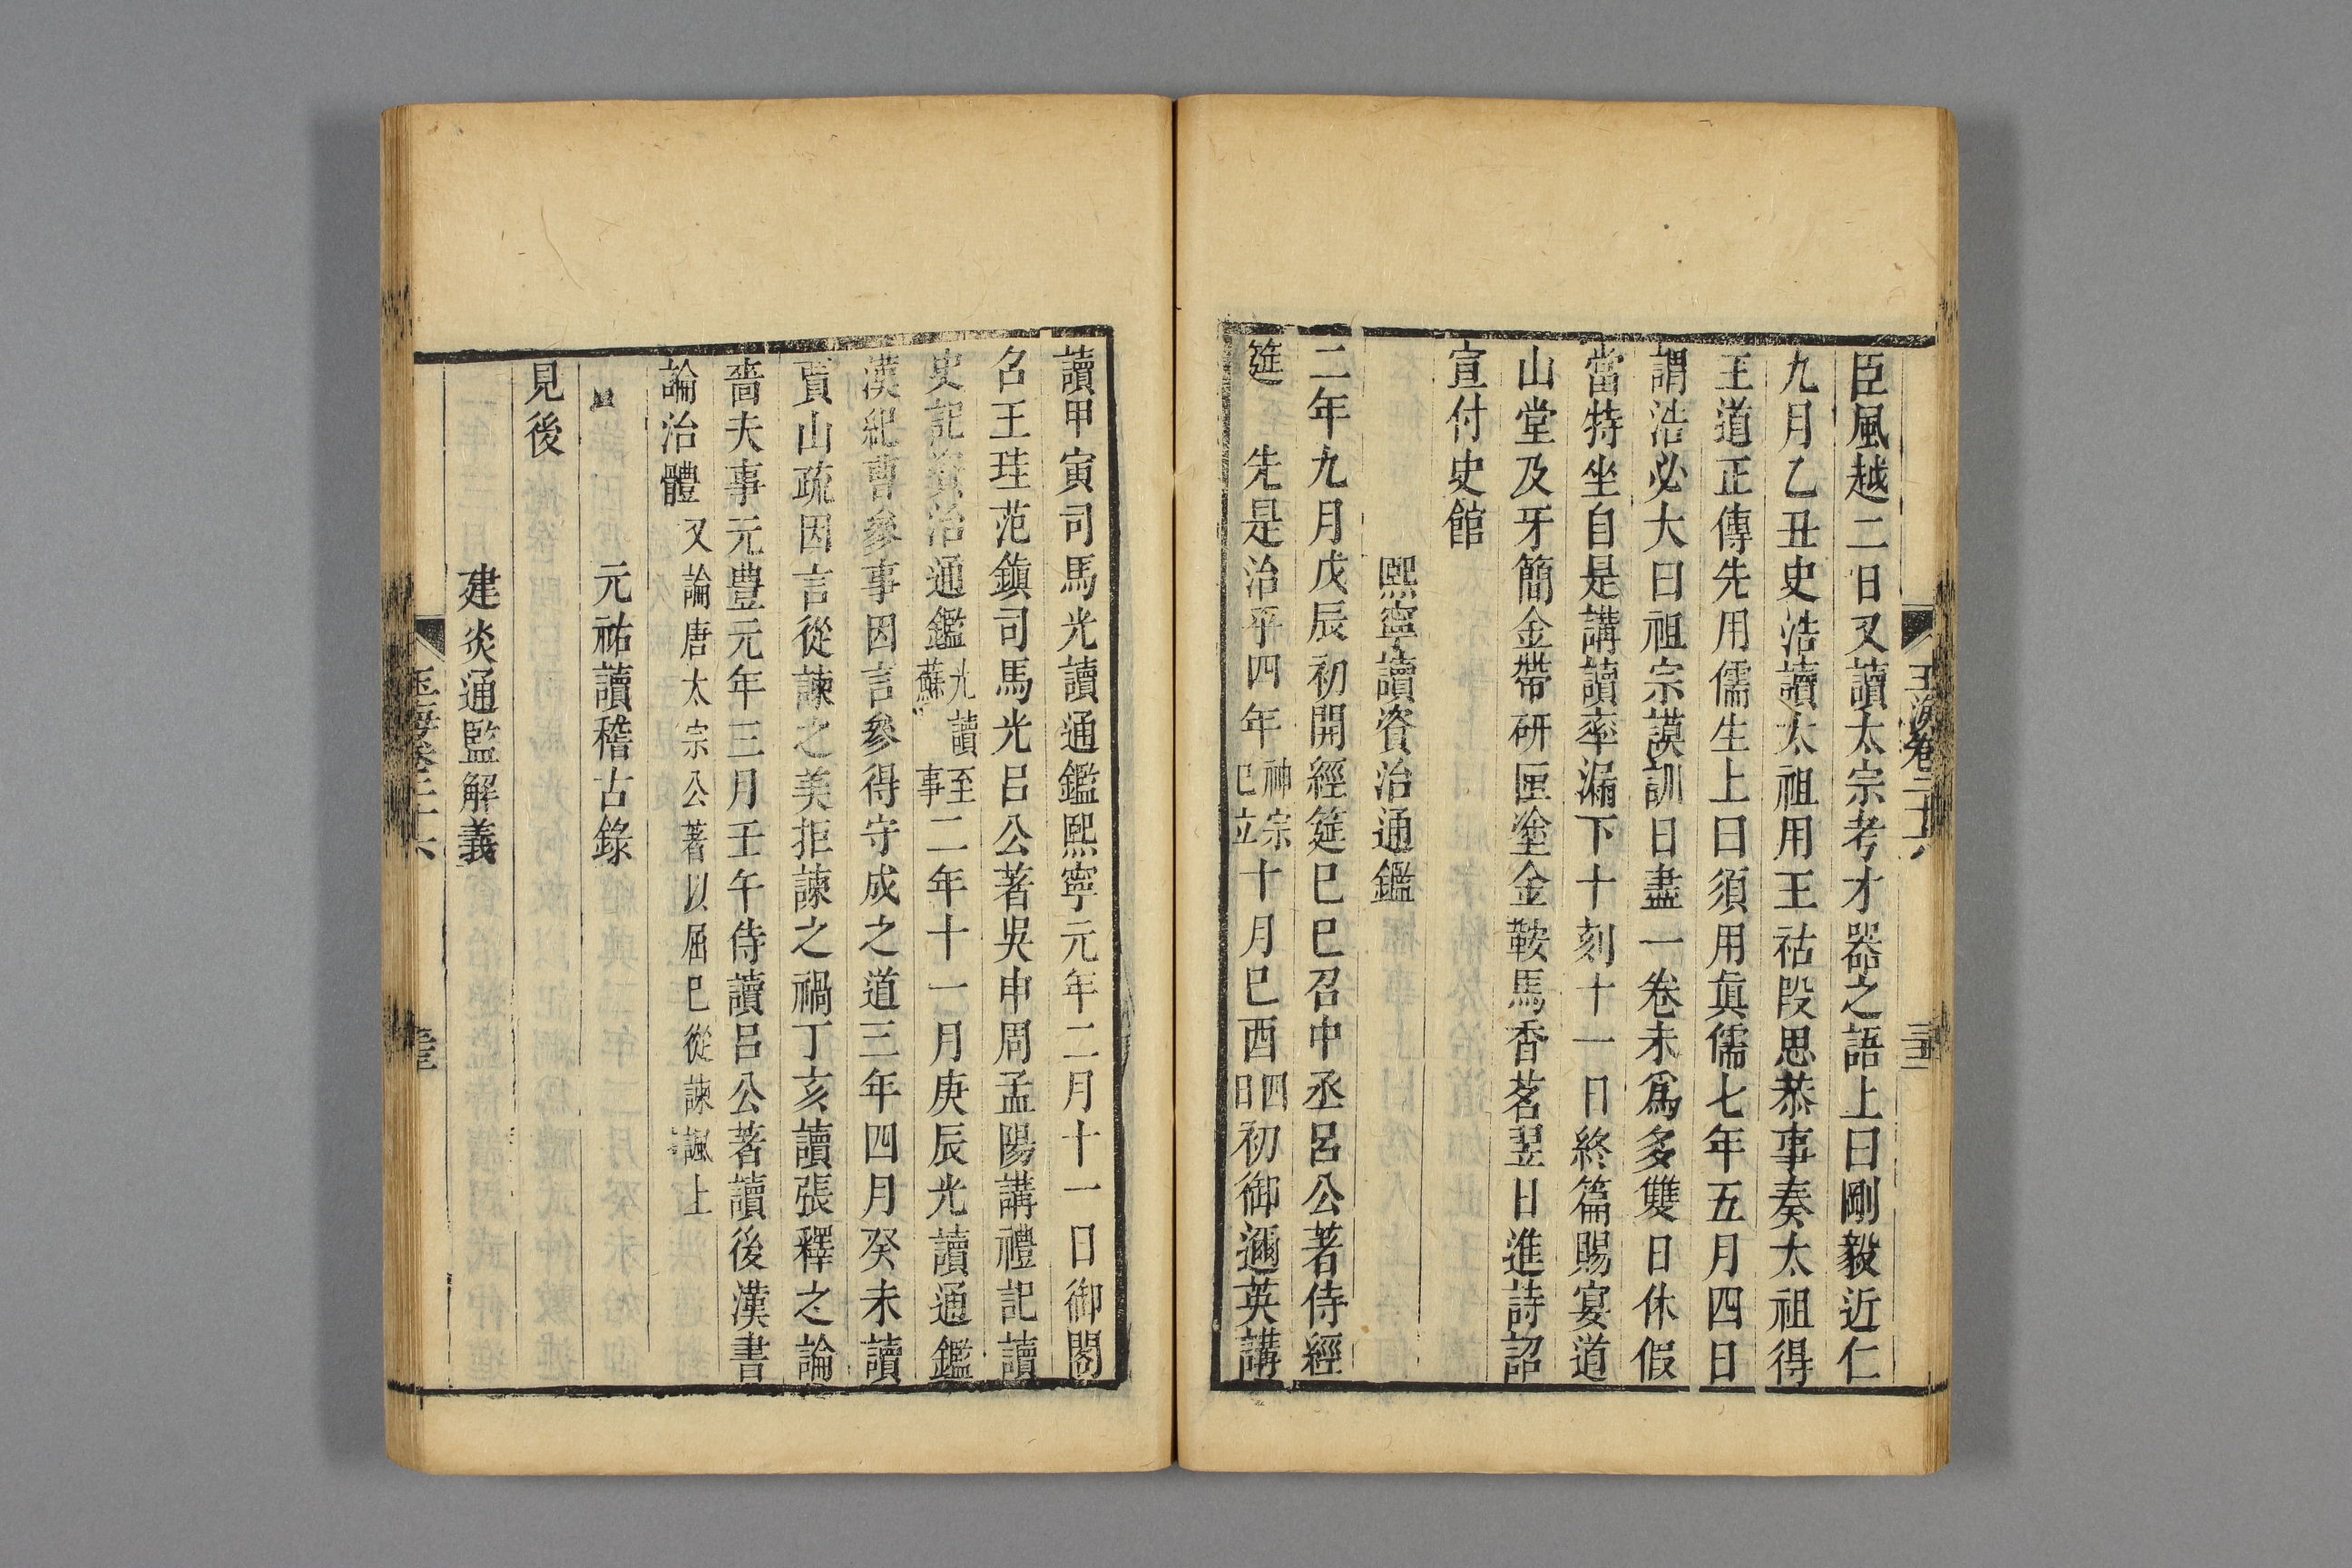 臣風越二日又讀太宗考才器之語上曰剛毅近仁
九月乙丑史浩讀太祖用王祜段思恭事奏太祖得
王道正傳先用儒生上曰須用眞儒七年五月四日
謂浩必大曰祖宗謨訓日盡一卷未爲多雙日休假
當特坐自是講讀率漏下十刻十一日終篇賜宴道
山堂及牙簡金帶硏匣塗金鞍馬香茗翌日進詩詔
宣付史館
熙寧讀資治通鑑
二年九月戊辰初開經筵巳巳召中丞呂公著侍經
筵 先是治平四年神宗巳立十月巳酉四日初御邇英講
讀甲寅司馬光讀通鑑熙寧元年二月十一日御閣
名王珪范鎮司馬光呂公著吳申周孟陽講禮記讀
史記資治通鑑光讀至蘇 事二年十一月庚辰光讀通鑑
漢紀曹參事因言參得守成之道三年四月癸未讀
賈山疏因言從諫之美拒諫之禍丁亥讀張釋之論
嗇夫事元豐元年三月壬午侍讀呂公著讀後漢書
論治體又論唐太宗公著以屈巳從諫諷上
元祐讀稽古錄
見後
建炎通監解義
玉海卷三十六